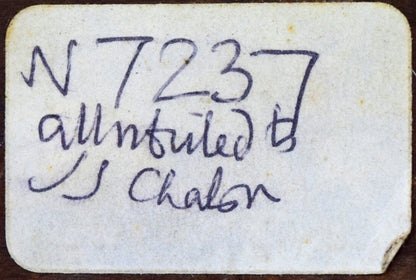 N 7237
attributed to
JJ Chalon